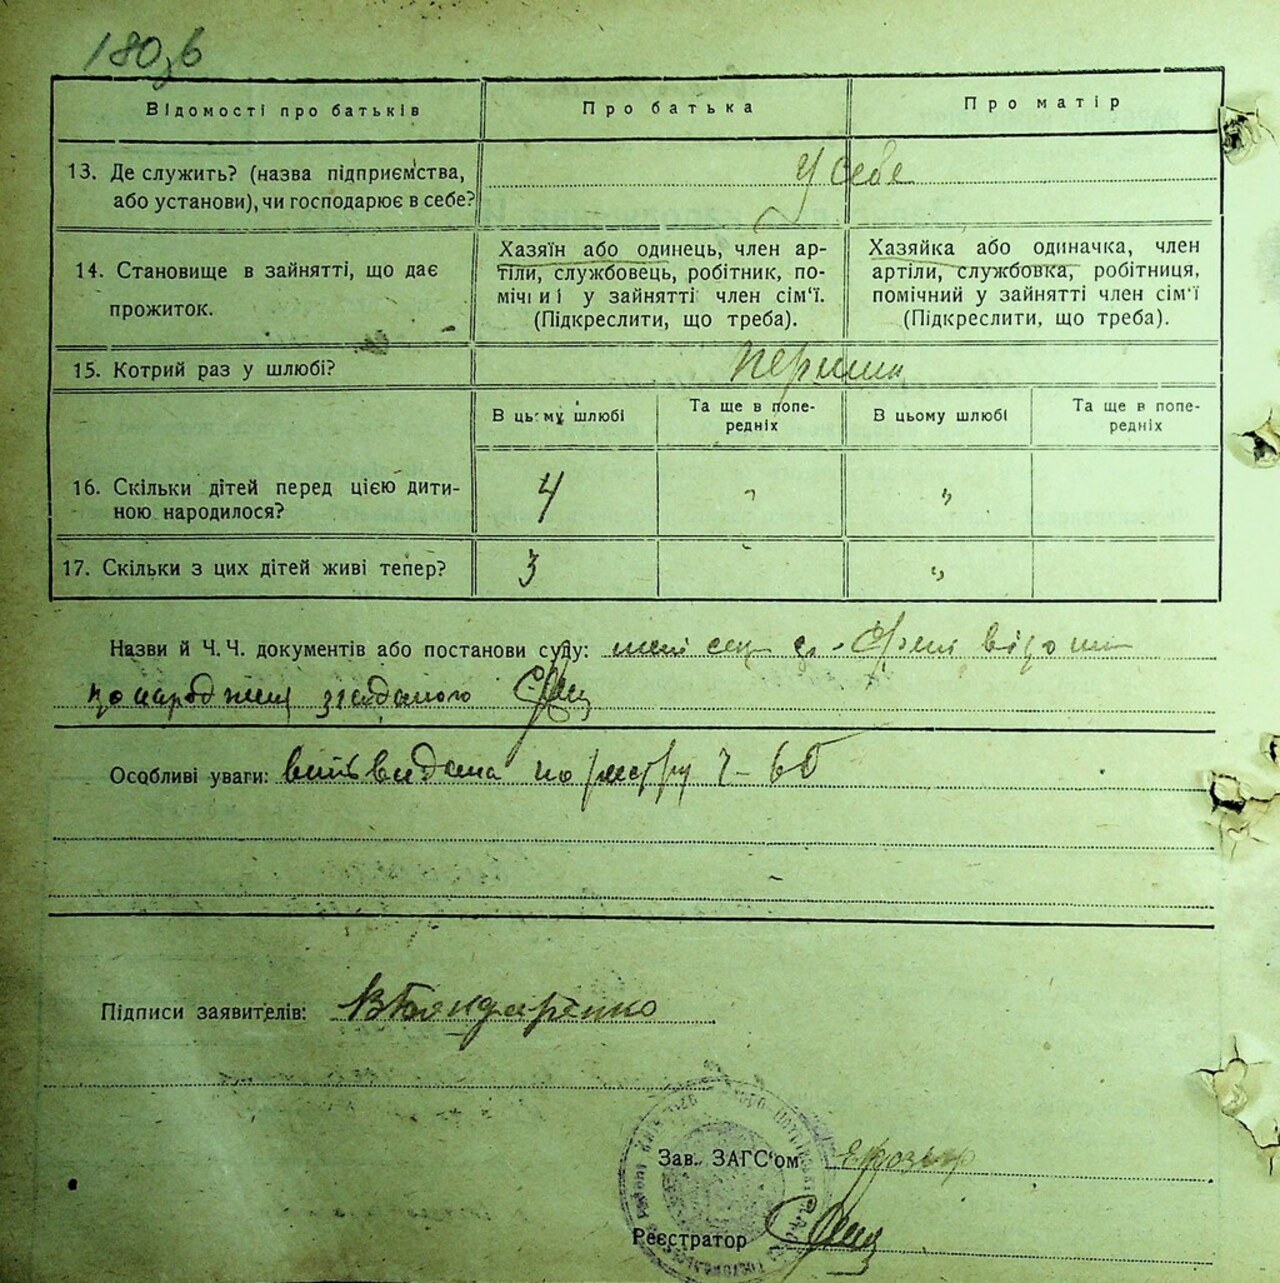 180зв
Відомості про батьків
Про батька
Про матір
13. Де служить? (назва підприємства,
або установи), чи господарює в себе?
у себе
14. Становище в зайнятті, що дає
прожиток.
Хазяїн або одинець, член ар-
тіли, службовець, робітник, по-
мічниі у зайнятті член сім'ї.
(Підкреслити, що треба).
Хазяйка або одиначка, член
артіли, службовка, робітниця,
помічний у зайнятті член сім'ї
(Підкреслити, що треба).
15. Котрий раз у шлюбі?
перший
В цьому шлюбі
Та ще в попе-
редніх
В цьому шлюбі
Та ще в попе-
редніх
16. Скільки дітей перед цією дити-
ною народилося?
4 " "
17. Скільки з цих дітей живі тепер?
3 "
Назви й Ч.Ч. документів або постанови суду:
по народженню згаданого
Особливі уваги: видана по реєстру ч-
Підписи заявителів: В Бондаренко
Зав. ЗАГС'ом
Реєстратор